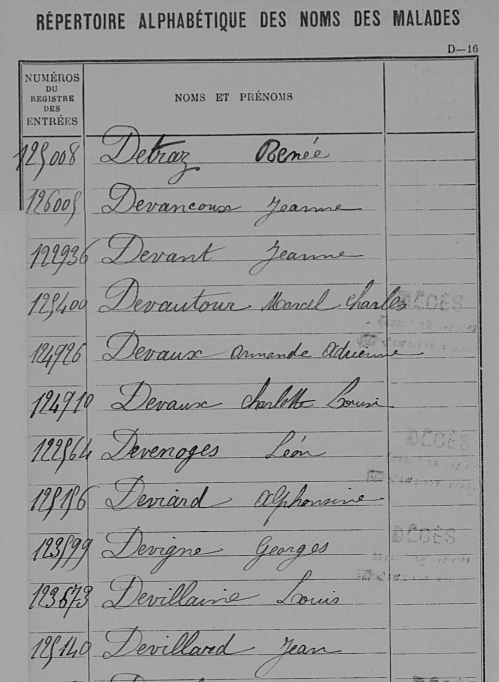 RÉPERTOIRE ALPHABÉTIQUE DES NOMS DES MALADES
D—16
NUMÉROS
DU
REGISTRE
DES
ENTRÉES
NOMS ET PRÉNOMS
125008 Detraz Renée
126005 Devancoux Jeanne
122936 Devant Jeanne
125400 Devautour Marcel Charles DÉCÉS
124926 Devaux Armande Adrienne
124910 Devaux Charlotte Louise
122564 Devenoges Léon DÉCÉS
125156 Deviard Alphonsine
123599 Devigne Georges DÉCÉS
123673 Devillaine Louis
125140 Devillard Jean